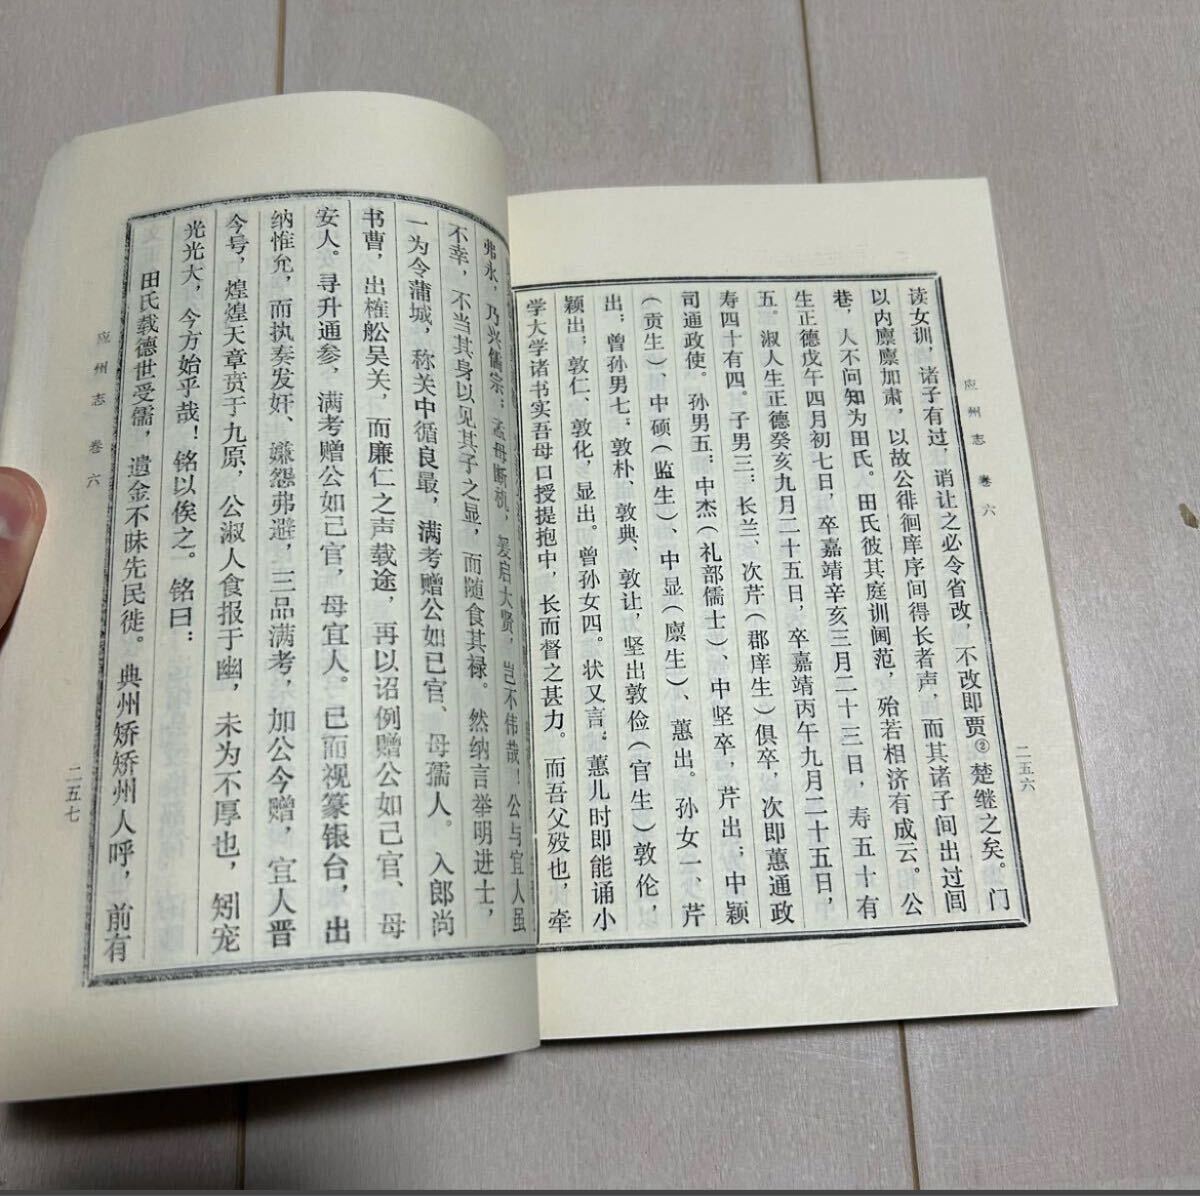 应州志 卷六
二五六
读女训，诸子有过，诮让之必令省改，不改即贾②楚继之矣。门
以内凛凛加肃，以故公徘徊庠序间得长者声，而其诸子间出过闾
巷，人不问知为田氏。田氏彼其庭训阃范，殆若相济有成云。公
生正德戊午四月初七日，卒嘉靖辛亥三月二十三日，寿五十有
五。淑人生正德癸亥九月二十五日，卒嘉靖丙午九月二十五日，
寿四十有四。子男三：长兰、次芹（郡庠生）俱卒，次即蕙通政
司通政使。孙男五：中杰（礼部儒士）、中坚卒，芹出；中颖
（贡生）、中硕（监生）、中显（廪生）、蕙出。孙女一、芹
出；曾孙男七：敦朴、敦典、敦让，坚出敦俭（官生）敦伦，
颖出；敦仁、敦化，显出。曾孙女四。状又言：蕙儿时即能诵小
学大学诸书实吾母口授提抱中，长而督之甚力。而吾父殁也，牵
弗永，乃兴儒宗；孟母断机，爰启大贤，岂不伟哉！公与宜人虽
不幸，不当其身以见其子之显，而随食其禄。然纳言举明进士，
一为令蒲城，称关中循良最，满考赠公如已官、母孺人。入郎尚
书曹，出榷舩吴关，而廉仁之声载途，再以诏例赠公如己官、母
安人。寻升通参，满考赠公如己官，母宜人。已而视篆银台，出
纳惟允，而执奏发奸、嫌怨弗避，三品满考，加公今赠，宜人晋
今号，煌煌天章贲于九原，公淑人食报于幽，未为不厚也，矧宠
光光大，今方始乎哉！铭以俟之。铭曰：
田氏载德世受儒，遗金不昧先民徙。典州矫矫州人呼，前有
应州志 卷六
二五七